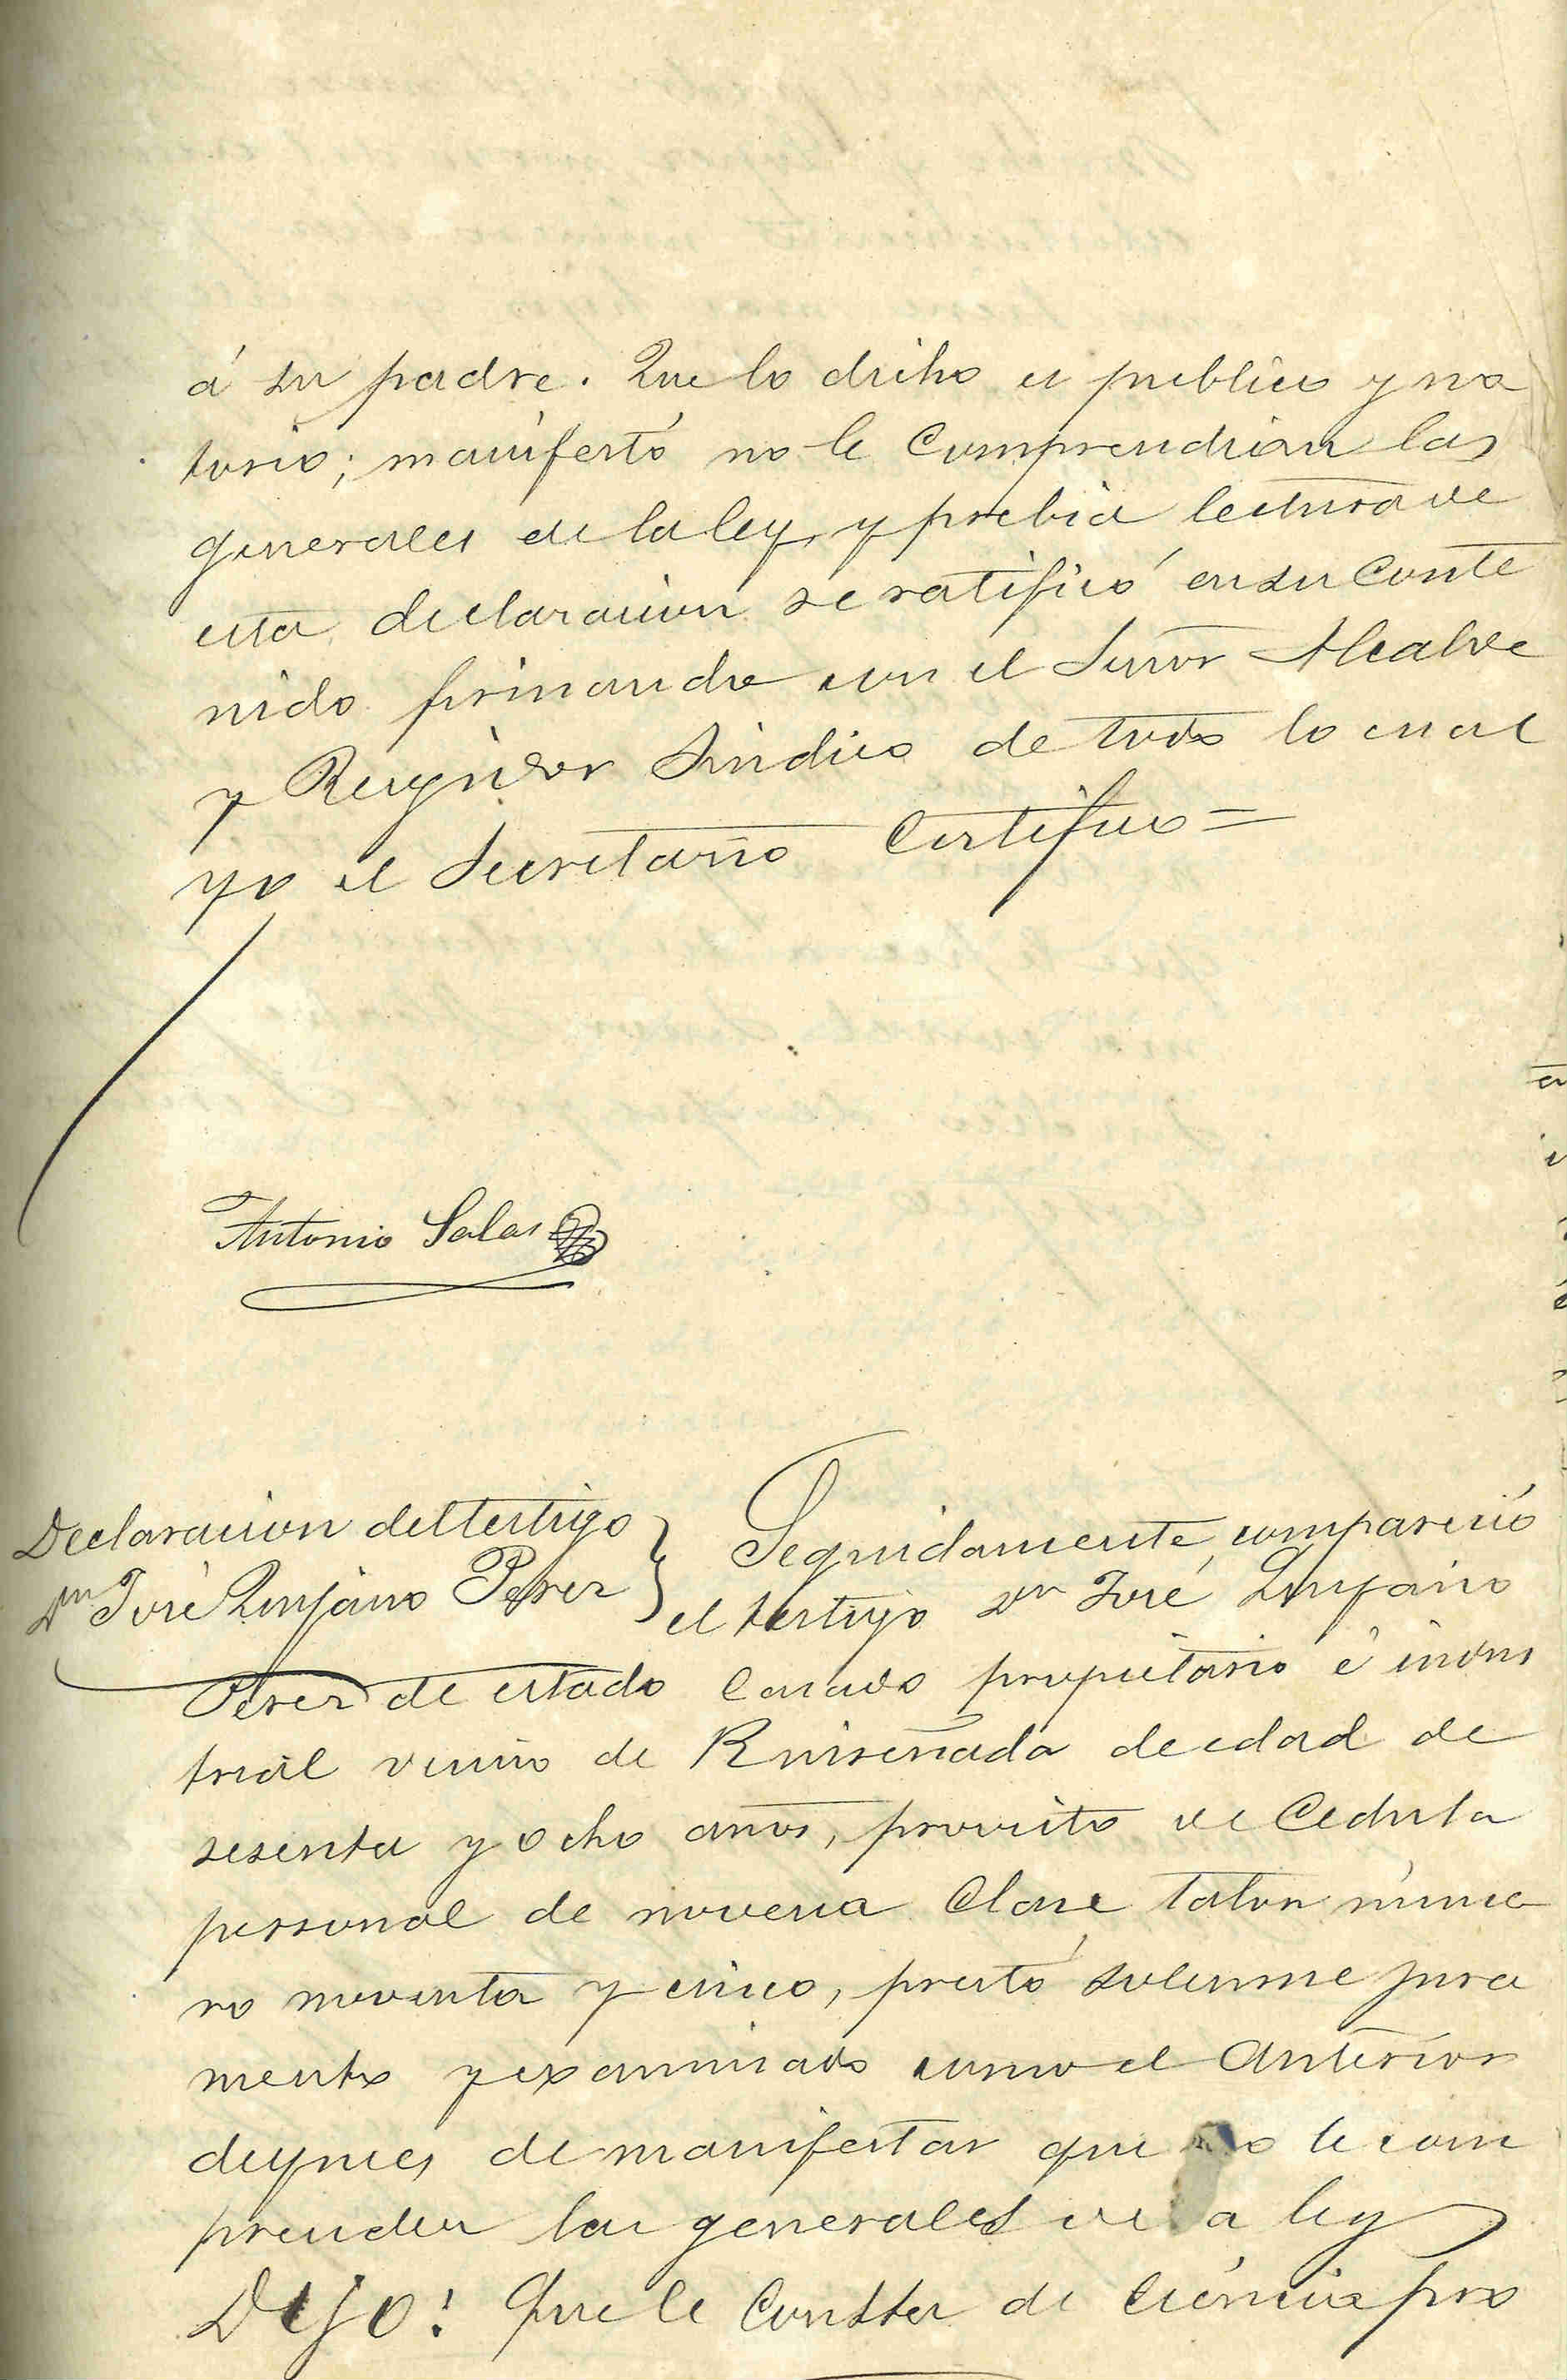 á su padre. Que lo dicho es publico y no
torio; manifestó no le Comprendian las
generales de la ley, y prebia lectura de
esta declaracion se ratificó en su Conte
nido firmando con el Señor Alcalde
y Regidor Sindico de todo lo cual
yo el Secretario Certifico =
Antonio Salas
Declaracion del testigo
Dn José Quijano Perez
Seguidamente comparecio
el testigo Dn José Quijano
Perez de estado Casado propietario é indus
trial vecino de Ruiseñada de edad de
sesenta y ocho años, provisto de Cedula
personal de novena Clase talon núme
ro noventa y cinco, prestó solemne jura
mento y examinado como el anterior
despues de manifestar que no le com
prenden las generales de la ley
Dijo: Que le Consta de Ciencia pro